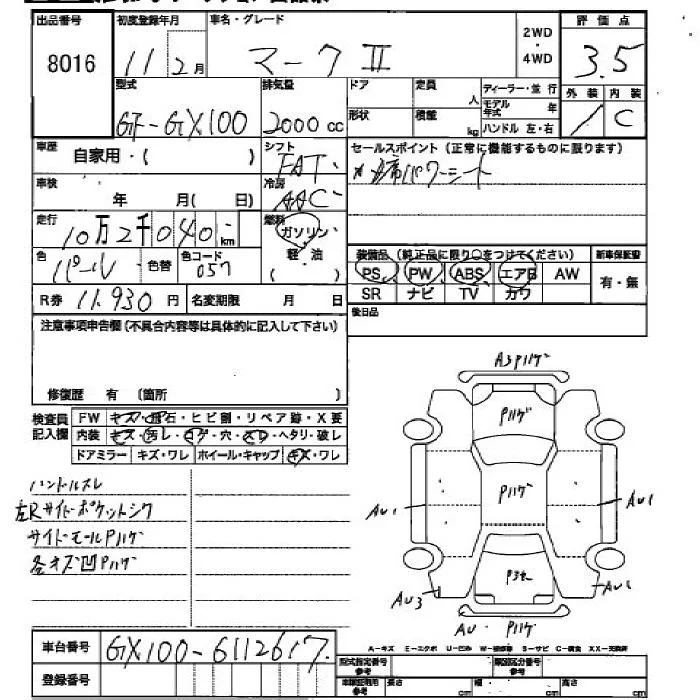 出品番号 初度登録年月 車名・グレード 2WD・4WD 評価点
8016 11 2月 マークⅡ 3.5
型式 排気量 ドア 定員 人 ディーラー・並行 外装 内装
GF-GX100 2000cc 形状 積載 kg モデル年式 年 ハンドル 左・右 / C
車歴 自家用・( ) シフト FAT セールスポイント(正常に機能するものに限ります)
車検 年 月(日) 冷房 AAC 席パワーシート
走行 10万2千040km 燃料 ガソリン・軽・油 ( )
色 パール 色替 色コード 057 装備品(純正品に限り○をつけてください) 新車保証書
PS PW ABS エアB AW 有・無
R券 11,930円 名変期限 月 日 SR ナビ TV カワ
注意事項申告欄(不具合内容等は具体的に記入して下さい) 後日品
修復歴 有 (箇所 )
検査員記入欄 FW キズ・飛石・ヒビ割・リペア跡・X要
内装 キズ・汚レ・コゲ・穴・スレ・ヘタリ・破レ
ドアミラー キズ・ワレ ホイール・キャップ キズ・ワレ
ハンドルスレ
左Rサイドポケットシク
サイドモールPハゲ
各キズ凹Pハゲ
A3Pハゲ
Pハゲ
Pハゲ
AU1 AU1
AU3
AU・Pハゲ
車台番号 GX100-6112617
登録番号
A-キズ E-エクボ U-凹み S-サビ C-腐食
型式指定番号 参考 類別区分番号 参考
長さ cm 幅 cm 高さ cm